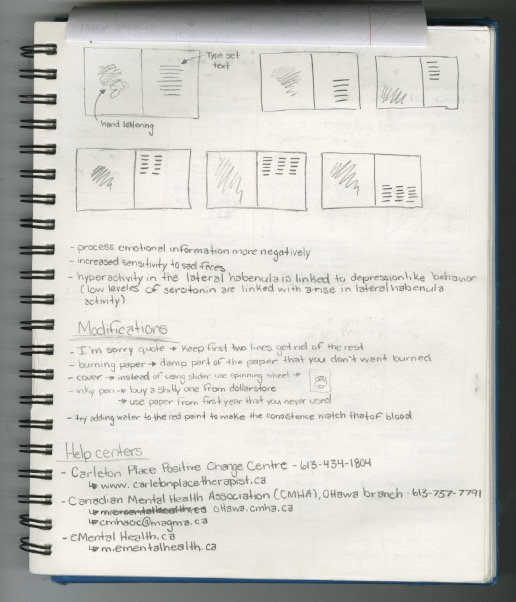 Type set
text
hand lettering
- process emotional information more negatively
- increased sensitivity to sad faces
- hyperactivity in the lateral habenula is linked to depression like behavior
(low levels of serotonin are linked with a rise in lateral habenula
activity)
Modifications
- I'm sorry quote → keep first two lines get rid of the rest
- burning paper → damp part of the paper that you don't want burned
- cover → instead of using slider use spinning wheel →
- inky pen → buy a shitty one from dollarstore
→ use paper from first year that you never used
- try adding water to the red paint to make the consistence match that of blood
Help centers
- Carleton Place Positive Change Centre - 613-434-1804
↳ www.carletonplacetherapist.ca
- Canadian Mental Health Association (CMHA), Ottawa branch - 613-737-7791
↳ ottawa.cmha.ca
↳ cmhaoc@magma.ca
- eMental Health.ca
↳ m.ementalhealth.ca